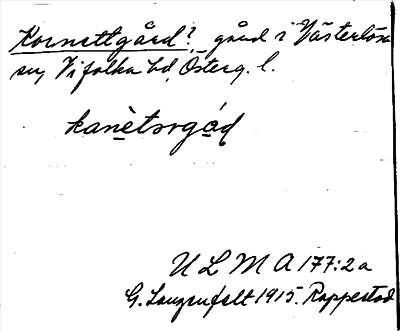 Kornettgård?, gård i Västerlösa
sn, Vifolka hd, Österg. l.
kanètsrgód
U L M A 177:2a
G. Langenfelt 1915. Rappestad